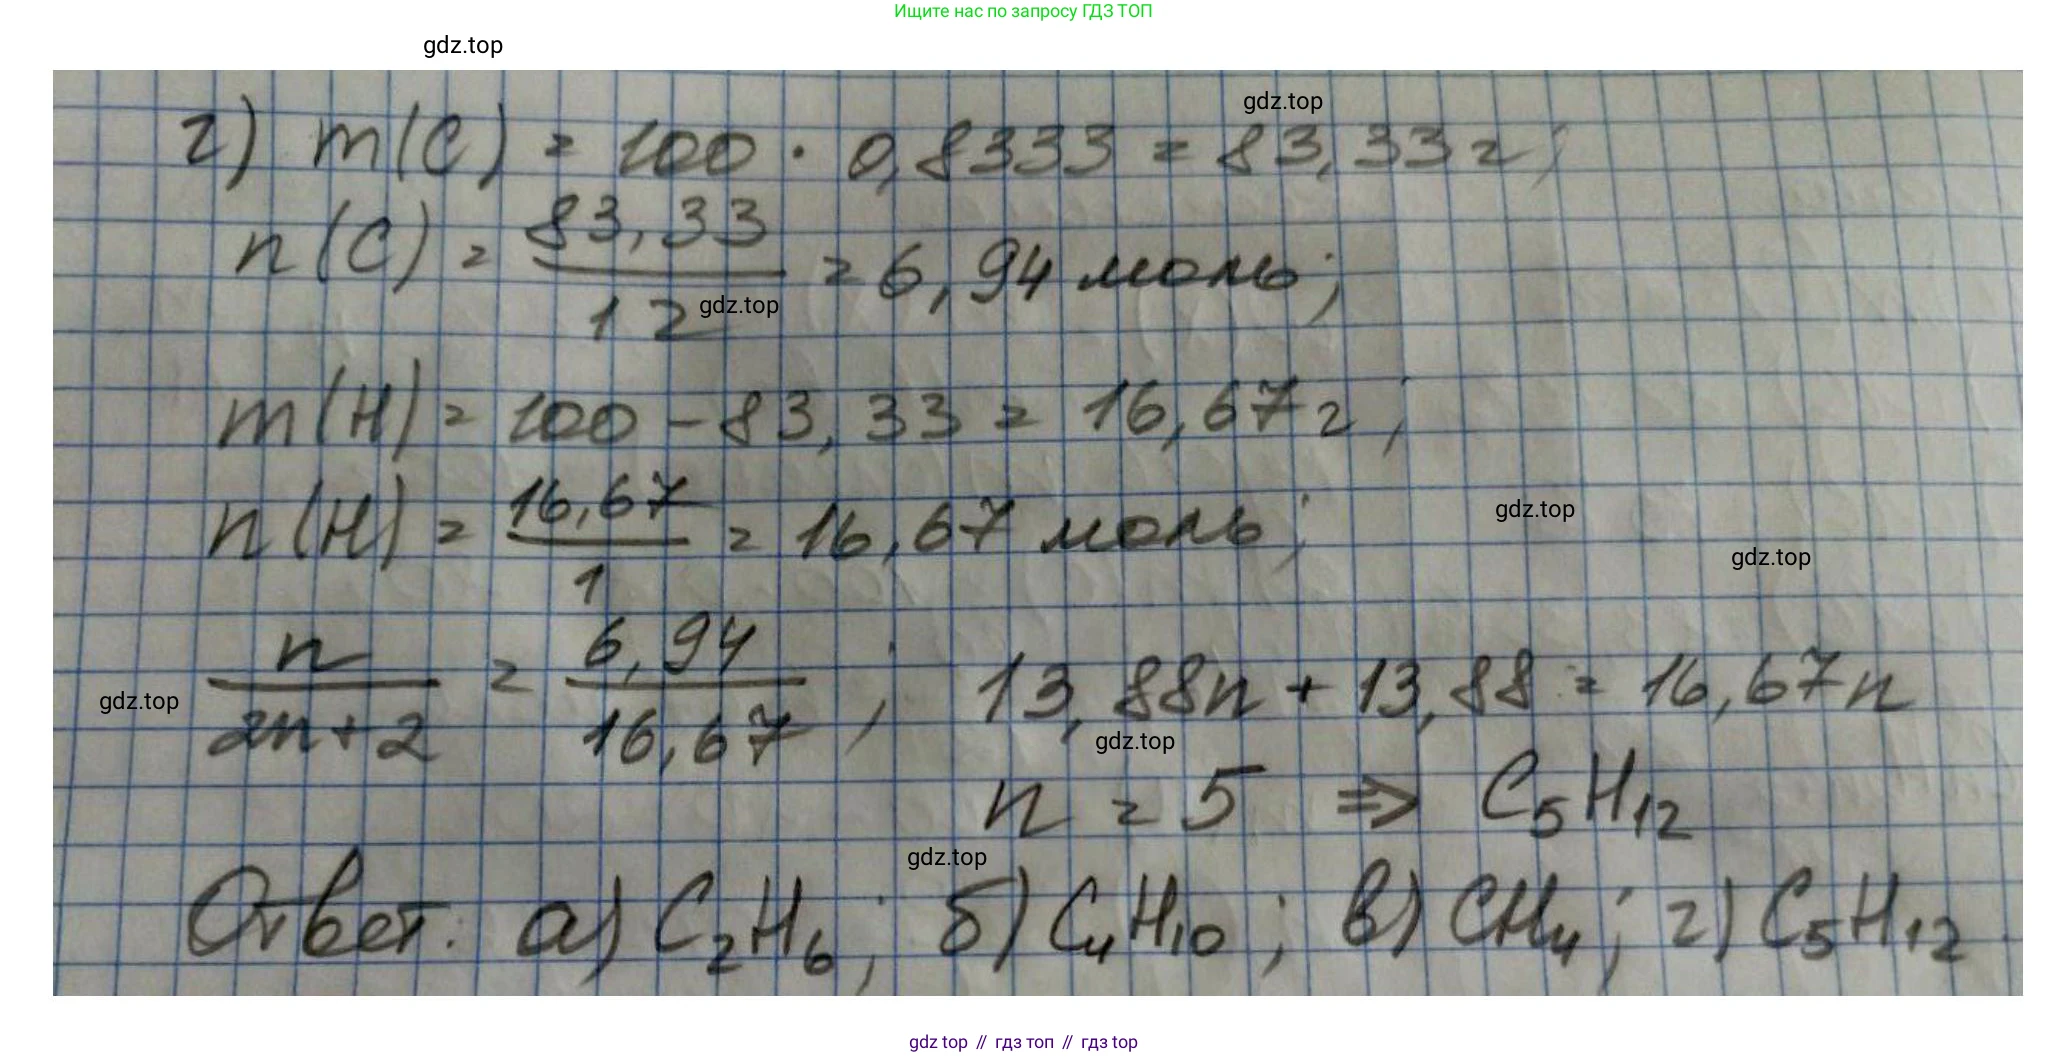 Ищите нас по запросу ГДЗ ТОП
gdz.top
gdz.top
г) m(C) = 100 · 0,8333 = 83,33 г;
n(C) = 83,33 / 12 = 6,94 моль;
gdz.top
m(H) = 100 - 83,33 = 16,67 г;
n(H) = 16,67 / 1 = 16,67 моль;
gdz.top
gdz.top
n / 2n+2 = 6,94 / 16,67 ; 13,88n + 13,88 = 16,67n
gdz.top
gdz.top
n = 5 ⇒ C₅H₁₂
gdz.top
Ответ: а) C₂H₆; б) C₄H₁₀; в) CH₄; г) C₅H₁₂.
gdz top // гдз топ // гдз top